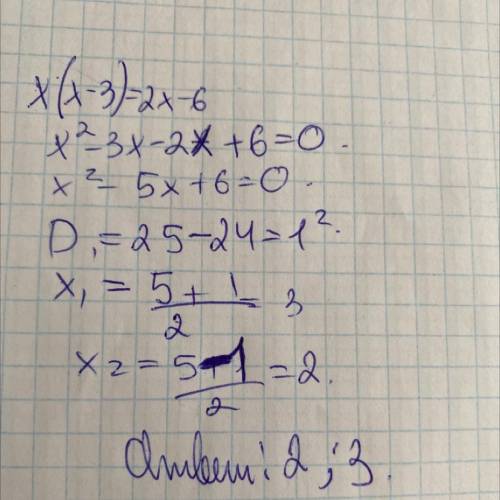 x(x-3)=2x-6
x²-3x-2x+6=0.
x²-5x+6=0.
D₁=25-24=1².
x₁=(5+1)/2=3
x₂=(5-1)/2=2.
Ответ: 2;3.